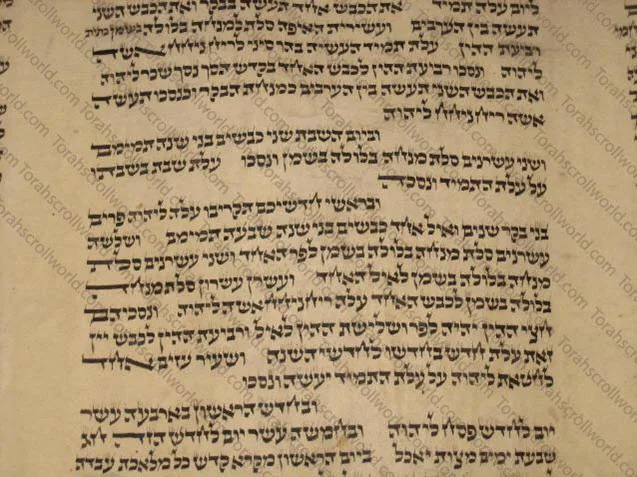 ליום עלה תמיד את הכבש אחד תעשה בבקר ואת הכבש השני
תעשה בין הערבים ועשירית האיפה סלת למנחה בלולה בשמן כתית
רביעת ההין עלת תמיד העשיה בהר סיני לריח ניחח אשה
ליהוה ונסכו רביעת ההין לכבש האחד בקדש הסך נסך שכר ליהוה
ואת הכבש השני תעשה בין הערבים כמנחת הבקר וכנסכו תעשה
אשה ריח ניחח ליהוה
וביום השבת שני כבשים בני שנה תמימם
ושני עשרנים סלת מנחה בלולה בשמן ונסכו עלת שבת בשבתו
על עלת התמיד ונסכה
ובראשי חדשיכם תקריבו עלה ליהוה פרים
בני בקר שנים ואיל אחד כבשים בני שנה שבעה תמימם ושלשה
עשרנים סלת מנחה בלולה בשמן לפר האחד ושני עשרנים סלת
מנחה בלולה בשמן לאיל האחד ועשרן עשרון סלת מנחה
בלולה בשמן לכבש האחד עלה ריח ניחח אשה ליהוה ונסכיהם
חצי ההין יהיה לפר ושלישת ההין לאיל ורביעת ההין לכבש יין
זאת עלת חדש בחדשו לחדשי השנה ושעיר עזים אחד
לחטאת ליהוה על עלת התמיד יעשה ונסכו
ובחדש הראשון בארבעה עשר
יום לחדש פסח ליהוה ובחמשה עשר יום לחדש הזה חג
שבעת ימים מצות יאכל ביום הראשון מקרא קדש כל מלאכת עבדה
Torahscrollworld.com